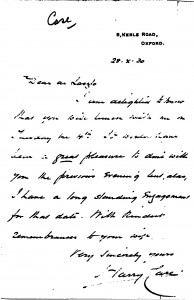 Care,
8, KEBLE ROAD,
OXFORD.
28.X.30
Dear de Laszlo
I am delighted to know
that you will lunch with me on
Tuesday the 4th. It would have
been a great pleasure to dine with
you the previous evening but, alas,
I have a long standing Engagement
for that date. With kindest
remembrances to your wife
Very sincerely yours
Harry Care